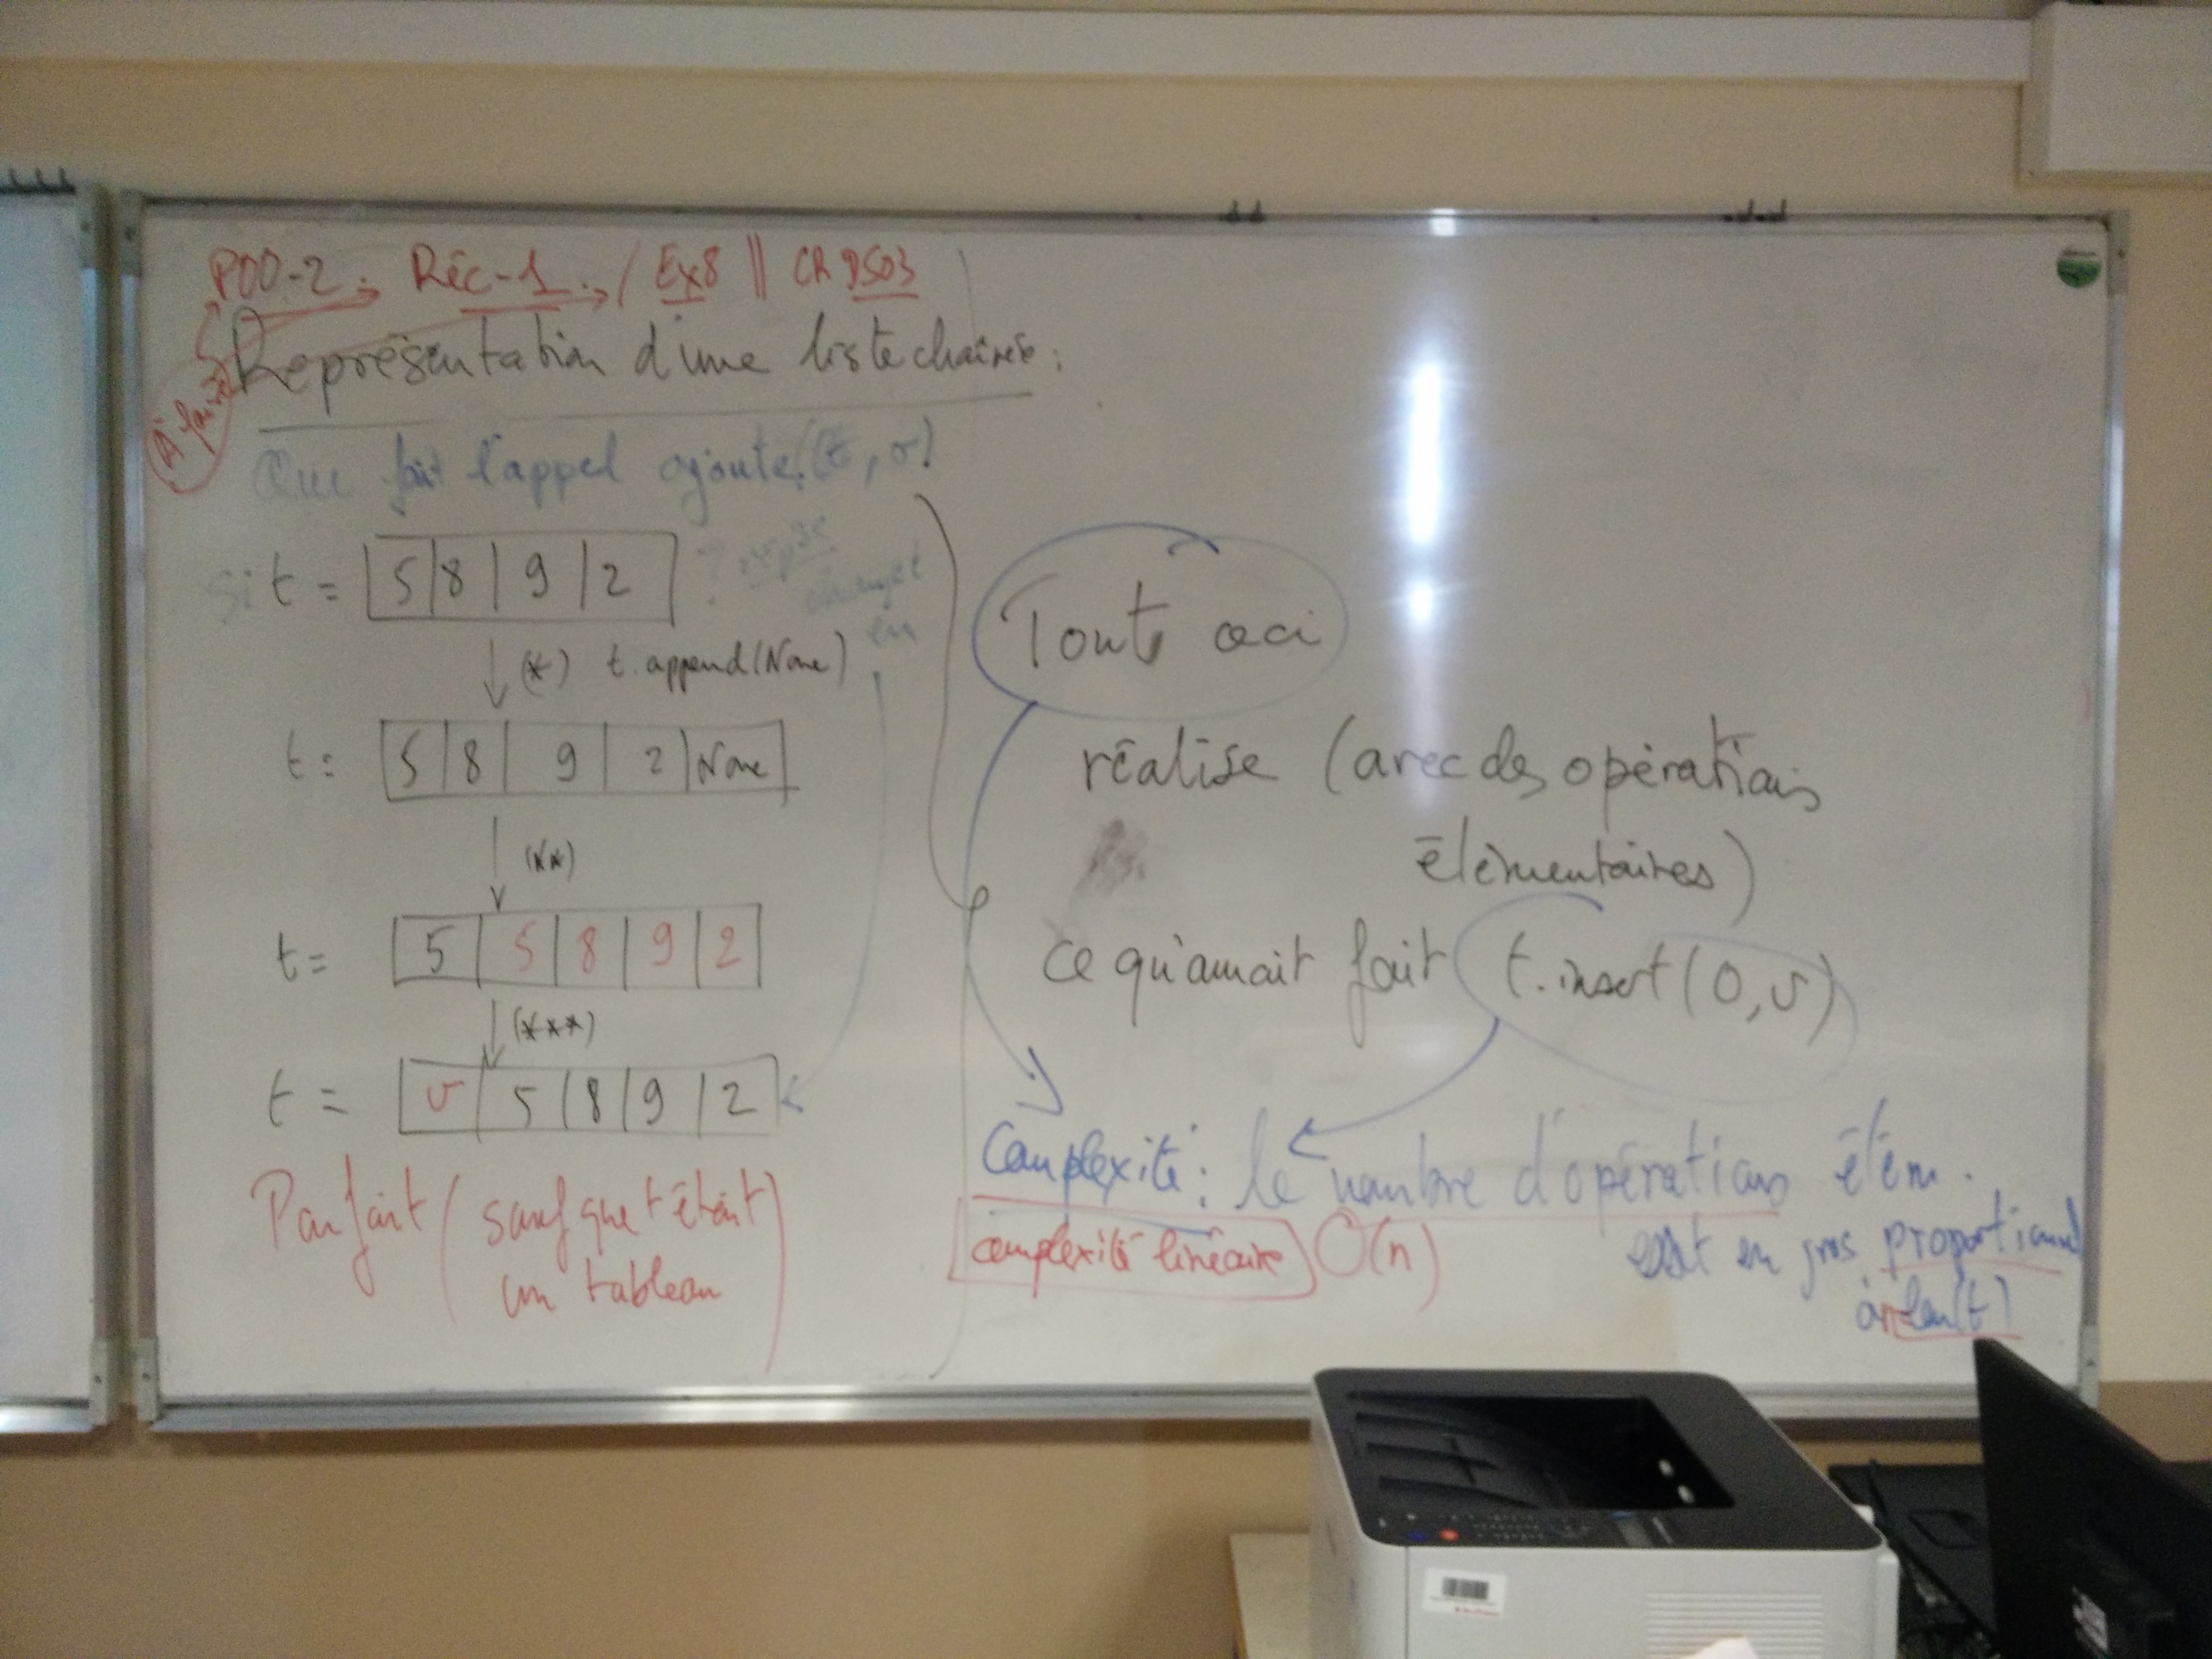 POO-2. Réc-1. / Ex8 || CR DS03
À faire
Représentation d'une liste chaînée :
Que fait l'appel ajoute(t, v)
si t = 5 | 8 | 9 | 2 ?
changé
en
(*) t.append(None)
t = 5 | 8 | 9 | 2 | None
(**)
t = 5 | 5 | 8 | 9 | 2
(***)
t = v | 5 | 8 | 9 | 2
Parfait (sauf que t était
un tableau)
Tout ceci
réalise (avec des opérations
élémentaires)
ce qu'aurait fait t.insert(0,v)
Complexité : le nombre d'opérations élém.
est en gros proportionnel
à len(t)
complexité linéaire O(n)